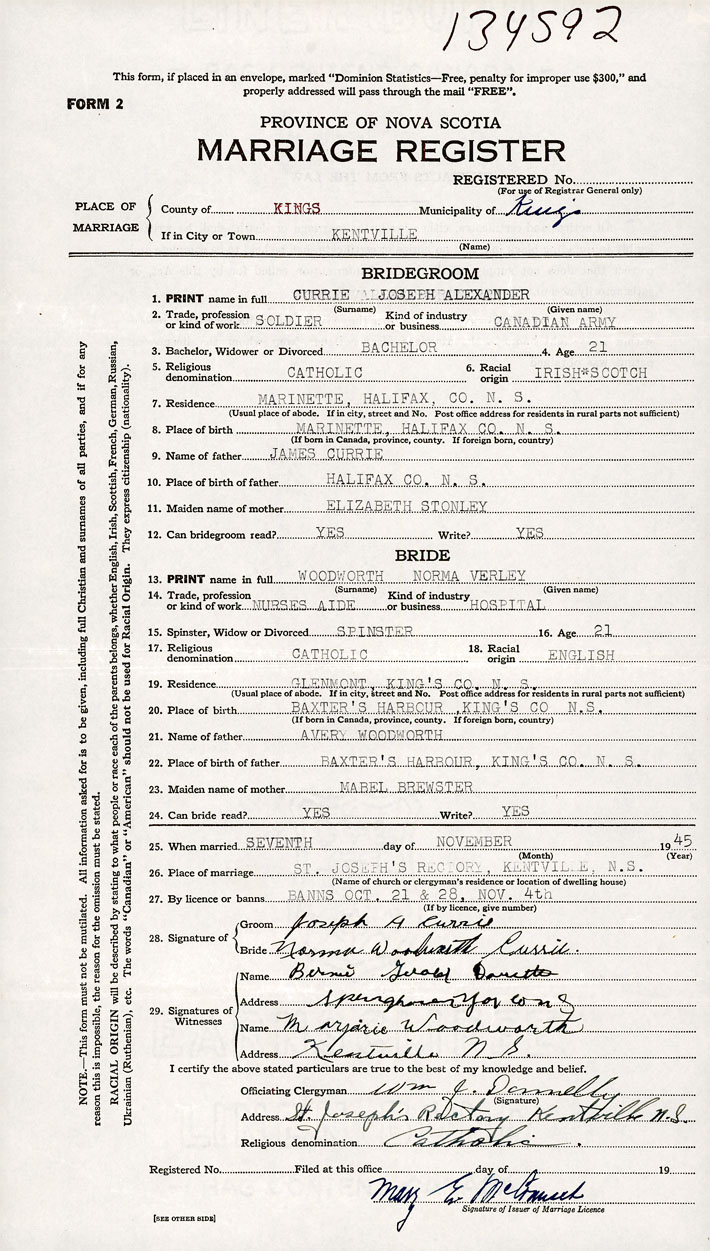 134592
This form, if placed in an envelope, marked “Dominion Statistics—Free, penalty for improper use $300,” and
properly addressed will pass through the mail “FREE”.
FORM 2
PROVINCE OF NOVA SCOTIA
MARRIAGE REGISTER
REGISTERED No.
(For use of Registrar General only)
PLACE OF MARRIAGE
County of KINGS Municipality of Kings
If in City or Town KENTVILLE
(Name)
BRIDEGROOM
1. PRINT name in full CURRIE JOSEPH ALEXANDER
(Surname) (Given name)
2. Trade, profession or kind of work SOLDIER Kind of industry or business CANADIAN ARMY
3. Bachelor, Widower or Divorced BACHELOR 4. Age 21
5. Religious denomination CATHOLIC 6. Racial origin IRISH*SCOTCH
7. Residence MARINETTE, HALIFAX, CO. N. S.
(Usual place of abode. If in city, street and No. Post office address for residents in rural parts not sufficient)
8. Place of birth MARINETTE, HALIFAX CO. N. S.
(If born in Canada, province, county. If foreign born, country)
9. Name of father JAMES CURRIE
10. Place of birth of father HALIFAX CO. N. S.
11. Maiden name of mother ELIZABETH STONLEY
12. Can bridegroom read? YES Write? YES
BRIDE
13. PRINT name in full WOODWORTH NORMA VERLEY
(Surname) (Given name)
14. Trade, profession or kind of work NURSES AIDE Kind of industry or business HOSPITAL
15. Spinster, Widow or Divorced SPINSTER 16. Age 21
17. Religious denomination CATHOLIC 18. Racial origin ENGLISH
19. Residence GLENMONT, KING'S CO. N. S.
(Usual place of abode. If in city, street and No. Post office address for residents in rural parts not sufficient)
20. Place of birth BAXTER'S HARBOUR ,KING'S CO N.S.
(If born in Canada, province, county. If foreign born, country)
21. Name of father AVERY WOODWORTH
22. Place of birth of father BAXTER'S HARBOUR, KING'S CO. N. S.
23. Maiden name of mother MABEL BREWSTER
24. Can bride read? YES Write? YES
25. When married SEVENTH day of NOVEMBER 1945
(Month) (Year)
26. Place of marriage ST. JOSEPH'S RECTORY, KENTVILLE, N.S.
(Name of church or clergyman's residence or location of dwelling house)
27. By licence or banns BANNS OCT. 21 & 28, NOV. 4th
(If by licence, give number)
28. Signature of
Groom Joseph A Currie
Bride Norma Woodworth Currie.
29. Signatures of Witnesses
Name Gerald
Address
Name Marjorie Woodworth
Address Kentville N S.
I certify the above stated particulars are true to the best of my knowledge and belief.
Officiating Clergyman Wm J. Donnelly
(Signature)
Address St. Joseph's Rectory Kentville N.S.
Religious denomination Catholic.
Registered No. Filed at this office day of 19
Mary E.
Signature of Issuer of Marriage Licence
[SEE OTHER SIDE]
NOTE.—This form must not be mutilated. All information asked for is to be given, including full Christian and surnames of all parties, and if for any
reason this is impossible, the reason for the omission must be stated.
RACIAL ORIGIN will be described by stating to what people or race each of the parents belongs, whether English, Irish, Scottish, French, German, Russian,
Ukrainian (Ruthenian), etc. The words “Canadian” or “American” should not be used for Racial Origin. They express citizenship (nationality).